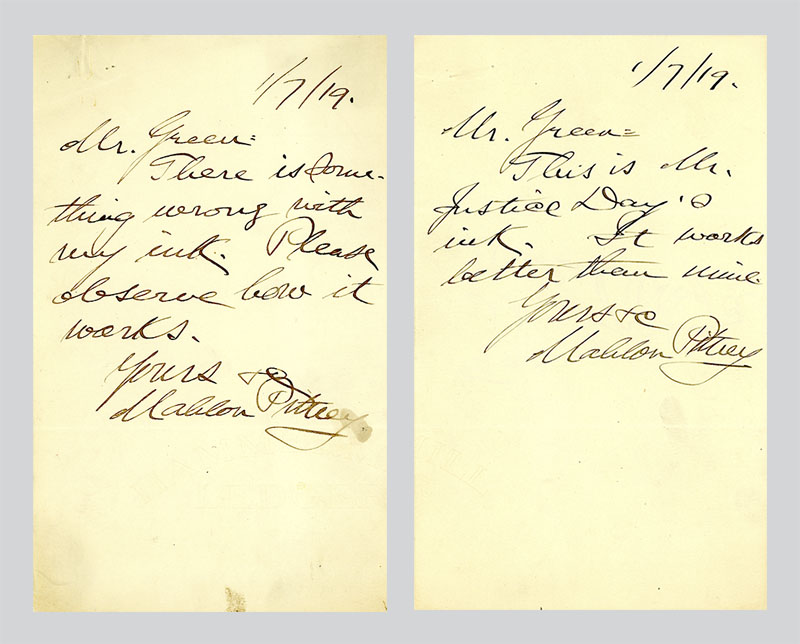 1/7/19.
Mr. Green=
There is some-
thing wrong with
my ink. Please
observe how it
works.
Yours &c
Mahlon Pitney
1/7/19.
Mr. Green=
This is Mr.
Justice Day's
ink. It works
better than mine
Yours &c
Mahlon Pitney